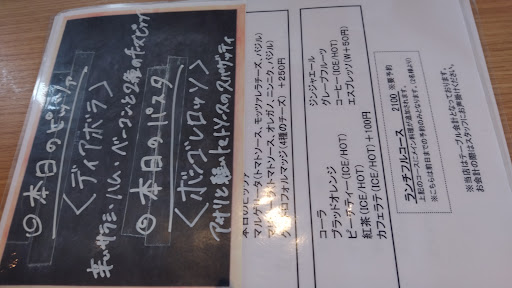 ◎本日のピッツァ
〈ディアボラ〉
辛いサラミ・ハム・ベーコンと2種のチーズピッツァ
◎本日のパスタ
〈ボンゴレロッソ〉
アサリと軽いトマトソースのスパゲッティ
本日のピッツァ
マルゲリータ(トマトソース、モッツァレラチーズ、バジル)
(トマトソース、オレガノ、ニンニク、バジル)
クワトロフォルマッジ(4種のチーズ) +250円
コーラ
ブラッドオレンジ
ピーチティー(ICE/HOT)
紅茶(ICE/HOT)
カフェラテ(ICE/HOT)+100円
ジンジャエール
グレープフルーツ
コーヒー(ICE/HOT)
エスプレッソ(W+50円)
ランチフルコース 2100 ※要予約
上記のコースにメイン料理が追加されます。(2名様より)
※こちらは前日までの予約のみとなります。
※当店はテーブル会計となっております。
お会計の際はスタッフにお声掛けください。